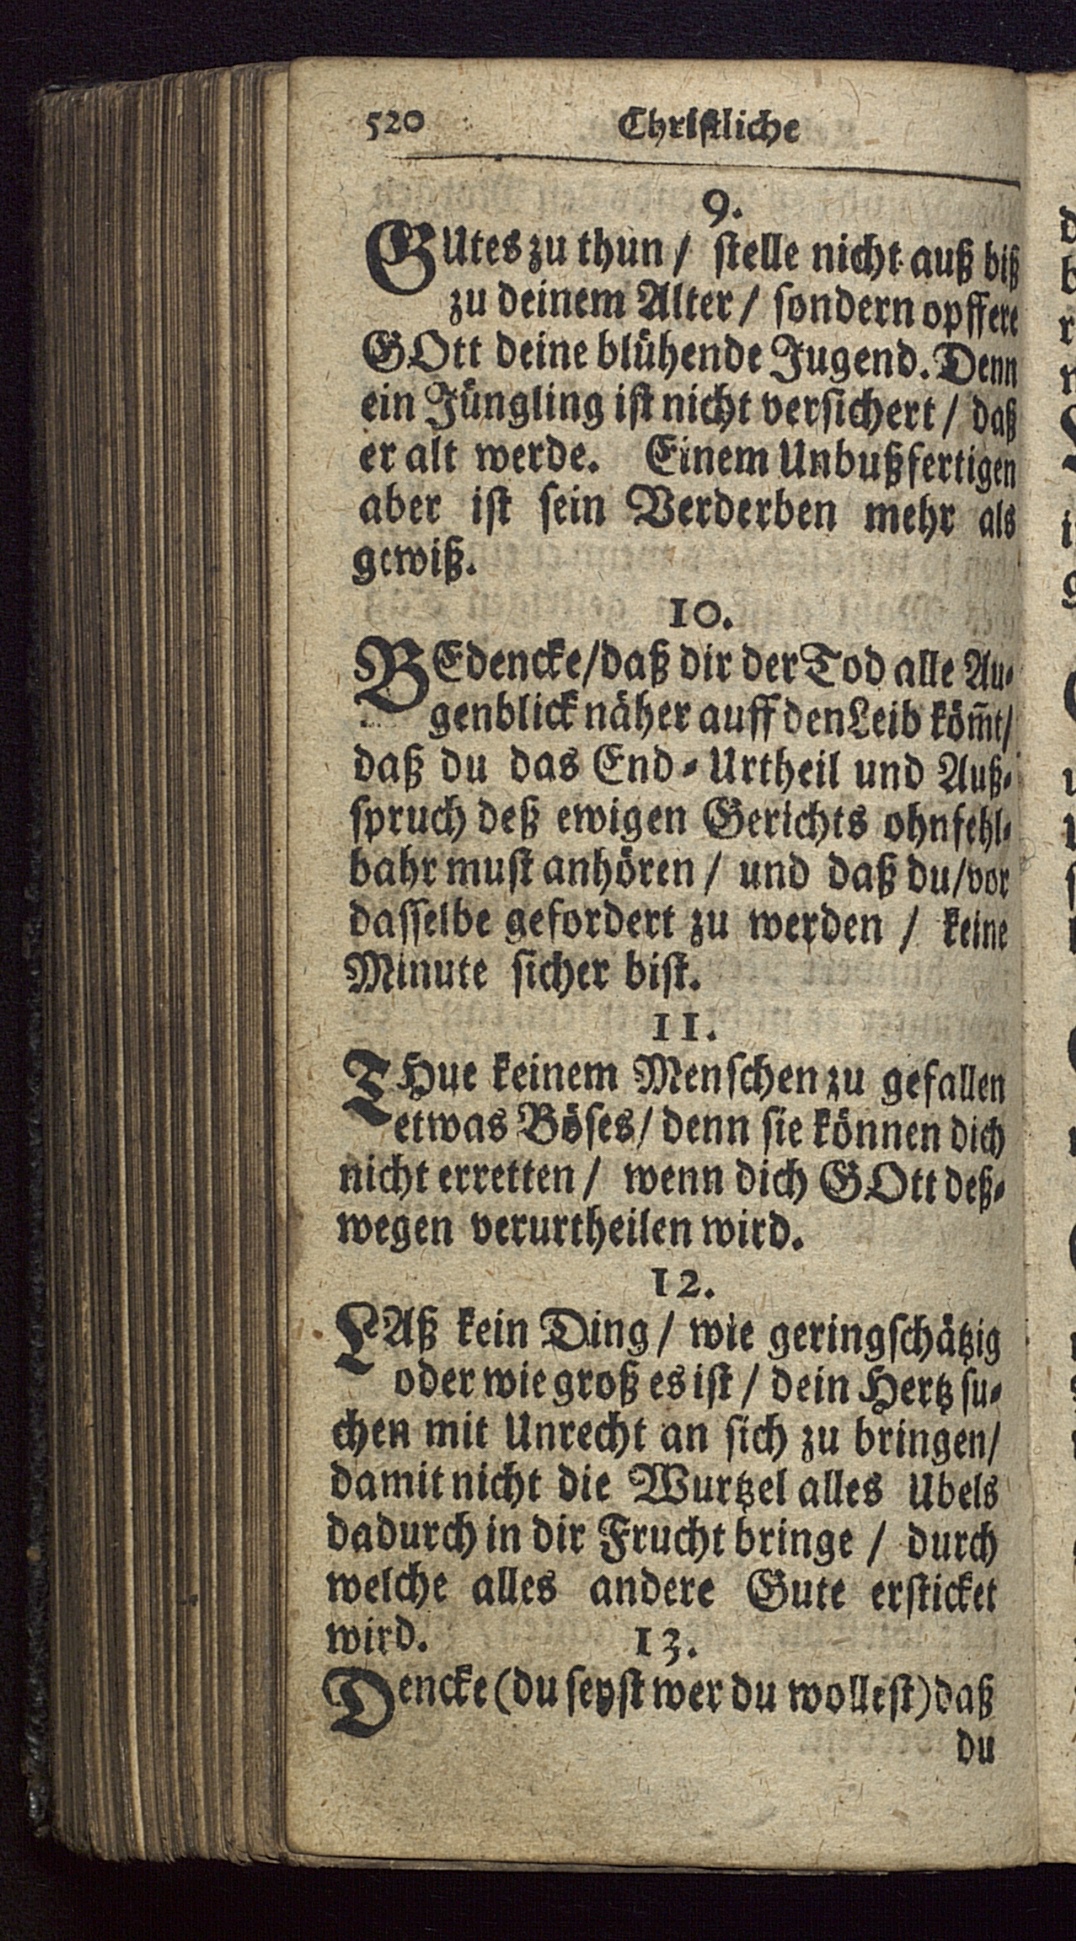 520 Christliche
9.
GUtes zu thun / stelle nicht auß biß
zu deinem Alter / sondern opffere
GOtt deine blühende Jugend. Denn
ein Jüngling ist nicht versichert / daß
er alt werde. Einem Unbußfertigen
aber ist sein Verderben mehr als
gewiß.
10.
BEdencke / daß dir der Tod alle Au-
genblick näher auff den Leib köm̄t /
daß du das End-Urtheil und Auß-
spruch deß ewigen Gerichts ohnfehl-
bahr must anhören / und daß du / vor
dasselbe gefordert zu werden / keine
Minute sicher bist.
11.
THue keinem Menschen zu gefallen
etwas Böses / denn sie können dich
nicht erretten / wenn dich GOtt deß-
wegen verurtheilen wird.
12.
LAß kein Ding / wie geringschätzig
oder wie groß es ist / dein Hertz su-
chen mit Unrecht an sich zu bringen /
damit nicht die Wurtzel alles Ubels
dadurch in dir Frucht bringe / durch
welche alles andere Gute ersticket
wird.
13.
Dencke (du seyst wer du wollest) daß
du